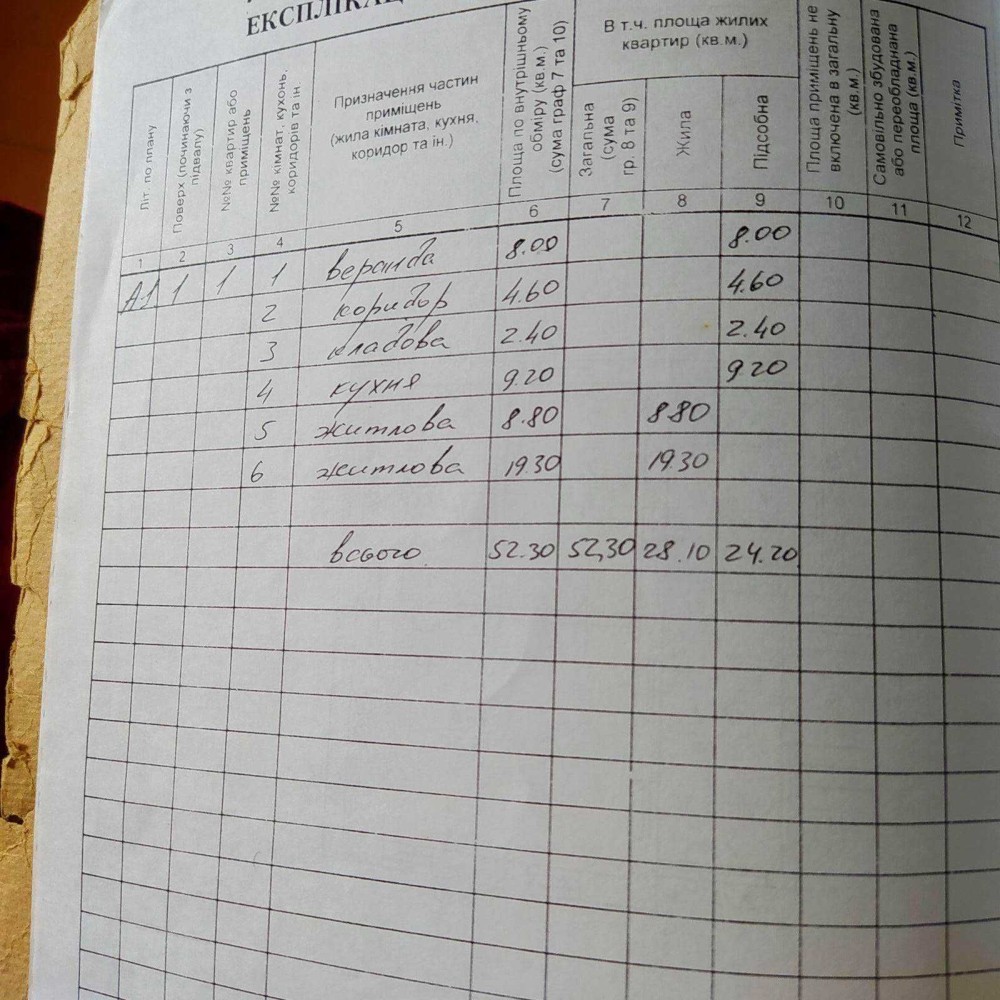 ЕКСПЛІКАЦ
Літ. по плану
Поверх (починаючи з підвалу)
№№ квартир або приміщень
№№ кімнат, кухонь, коридорів та ін
Призначення частин
приміщень
(жила кімната, кухня,
коридор та ін.)
Площа по внутрішньому обміру (кв.м.) (сума граф 7 та 10)
В т.ч. площа жилих
квартир (кв.м.)
Загальна (сума гр. 8 та 9)
Жила
Підсобна
Площа приміщень не включена в загальну (кв.м.)
Самовільно збудована або переобладнана площа (кв.м.)
Примітка
1 2 3 4 5 6 7 8 9 10 11 12
А1 1 1 1 веранда 8.00 8.00
2 коридор 4.60 4.60
3 кладова 2.40 2.40
4 кухня 9.20 9.20
5 житлова 8.80 8 80
6 житлова 19.30 19.30
всього 52.30 52,30 28.10 24.20